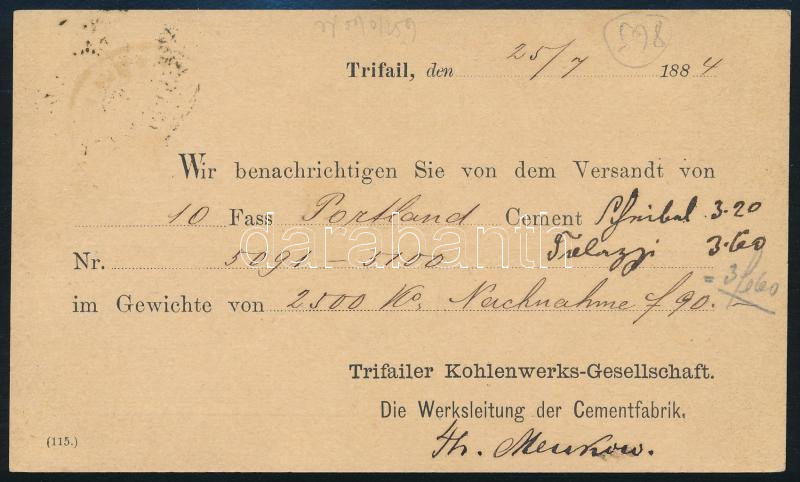 598
Trifail, den 25/7 1884
Wir benachrichtigen Sie von dem Versandt von
10 Fass Portland Cement 3.20
Nr. 5091 – 5100 3.60
im Gewichte von 2500 Ko. Nachnahme f 90.
Trifailer Kohlenwerks-Gesellschaft.
Die Werksleitung der Cementfabrik.
(115.)
darabanth